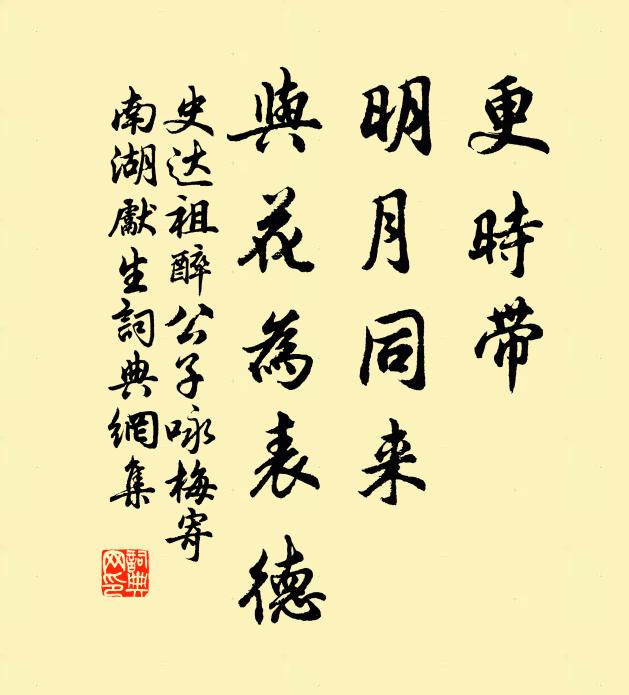 更時帶
明月同来
與花為表德
史达祖醉公子咏梅寄
南湖獻生詞典網集
詞典网印